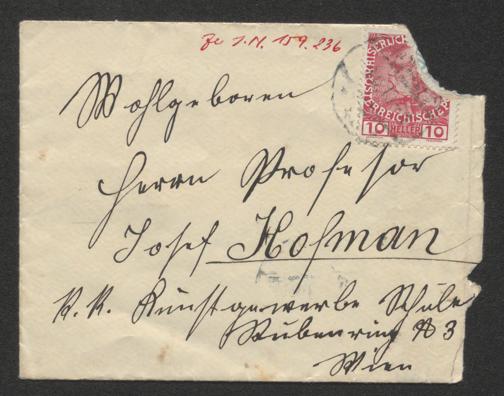 Ze I.N. 159.236
KAISERLICHE
ÖSTERREICHISCHE
10 HELLER 10
Wohlgeboren
Herrn Profesor
Josef Hofman
K.K. Kunstgewerbe Schule
Stubenring № 3
Wien